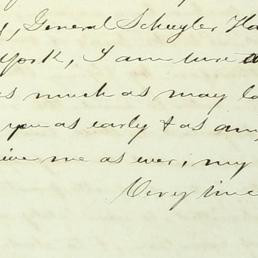 General Schuyler Ha
York, I am sure
as much as may be
you as early & as any
me as ever, my
Very since